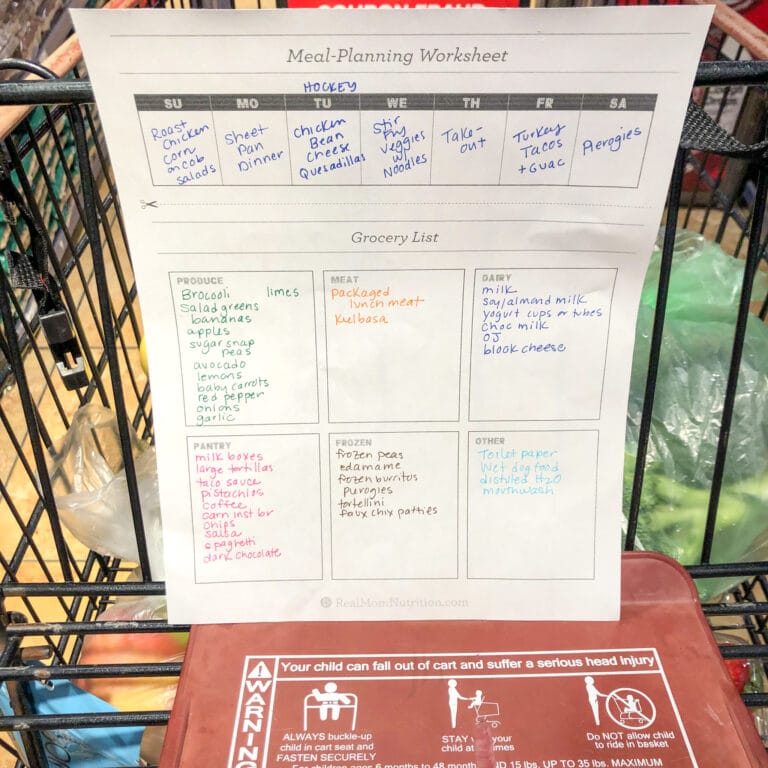 COUPON FRAUD
Meal-Planning Worksheet
HOCKEY
SU MO TU WE TH FR SA
Roast
Chicken
Corn
on cob
salads
Sheet
Pan
Dinner
Chicken
Bean
Cheese
Quesadillas
Stir
Fry
Veggies
w/
Noodles
Take-
out
Turkey
Tacos
+ Guac
Pierogies
Grocery List
PRODUCE
Brocooli limes
Salad greens
bananas
apples
sugar snap
peas
avocado
lemons
baby carrots
red pepper
onions
garlic
MEAT
packaged
lunch meat
Kielbasa
DAIRY
milk
soy/almond milk
yogurt cups or tubes
choc milk
OJ
block cheese
PANTRY
milk boxes
large tortillas
taco sauce
pistachios
coffee
carn inst br
chips
salsa
spaghetti
dark chocolate
FROZEN
frozen peas
edamame
frozen burritos
pierogies
tortellini
faux chix patties
OTHER
Toilet paper
Wet dog food
distilled H2O
mouthwash
RealMomNutrition.com
WARNING
Your child can fall out of cart and suffer a serious head injury
ALWAYS buckle-up
child in cart seat and
FASTEN SECURELY
STAY your
child at times
Do NOT allow child
to ride in basket
For children ages 6 months to 48 month ND 15 lbs. UP TO 35 lbs. MAXIMUM